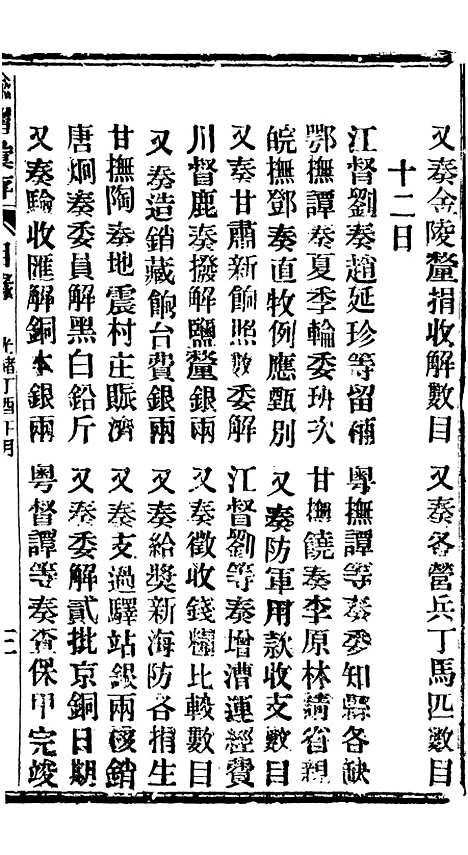 又奏金陵釐捐收解數目　又奏各營兵丁馬匹數目
十二日
江督劉奏趙延珍等留補　粵撫譚等奏參知縣各缺
鄂撫譚奏夏季輪委班次　甘撫饒奏李原林繞省親
皖撫鄧奏直牧例應甄別　又奏防軍用款收支數目
又奏甘肅新餉照數委解　江督劉等奏增漕運經費
川督鹿奏撥解鹽釐銀兩　又奏徵收錢糧比較數目
又奏造銷藏餉台費銀兩　又奏給獎新海防各捐生
甘撫陶奏地震村庄賑濟　又奏支過驛站銀兩核銷
唐炯奏委員解黑白鉛斤　又奏委解貳批京銅日期
又奏驗收匯解銅本銀兩　粵督譚等奏查保甲完竣
目錄　光緒丁酉　月　三